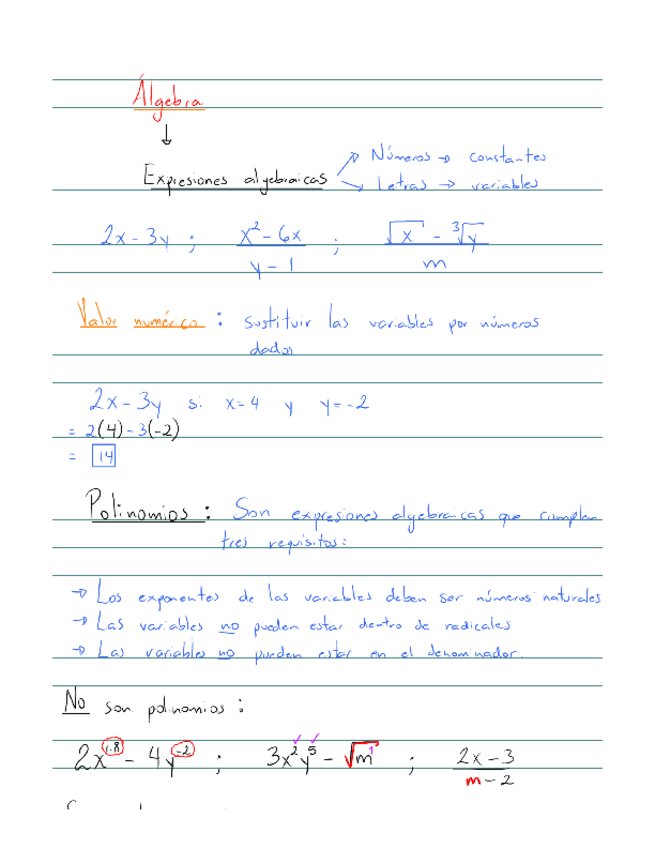 Álgebra
↓
Expresiones algebraicas
→ Números → constantes
→ Letras → variables
2x - 3y ; (x² - 6x)/(y - 1) ; (√x - ³√y)/m
Valor numérico : sustituir las variables por números
dados
2x - 3y si x=4 y y=-2
= 2(4) - 3(-2)
= 14
Polinomios : Son expresiones algebraicas que cumplen
tres requisitos:
→ Los exponentes de las variables deben ser números naturales
→ Las variables no pueden estar dentro de radicales
→ Las variables no pueden estar en el denominador.
No son polinomios :
2x^1.8 - 4y^-2 ; 3x²y⁵ - √m¹ ; (2x - 3)/(m - 2)